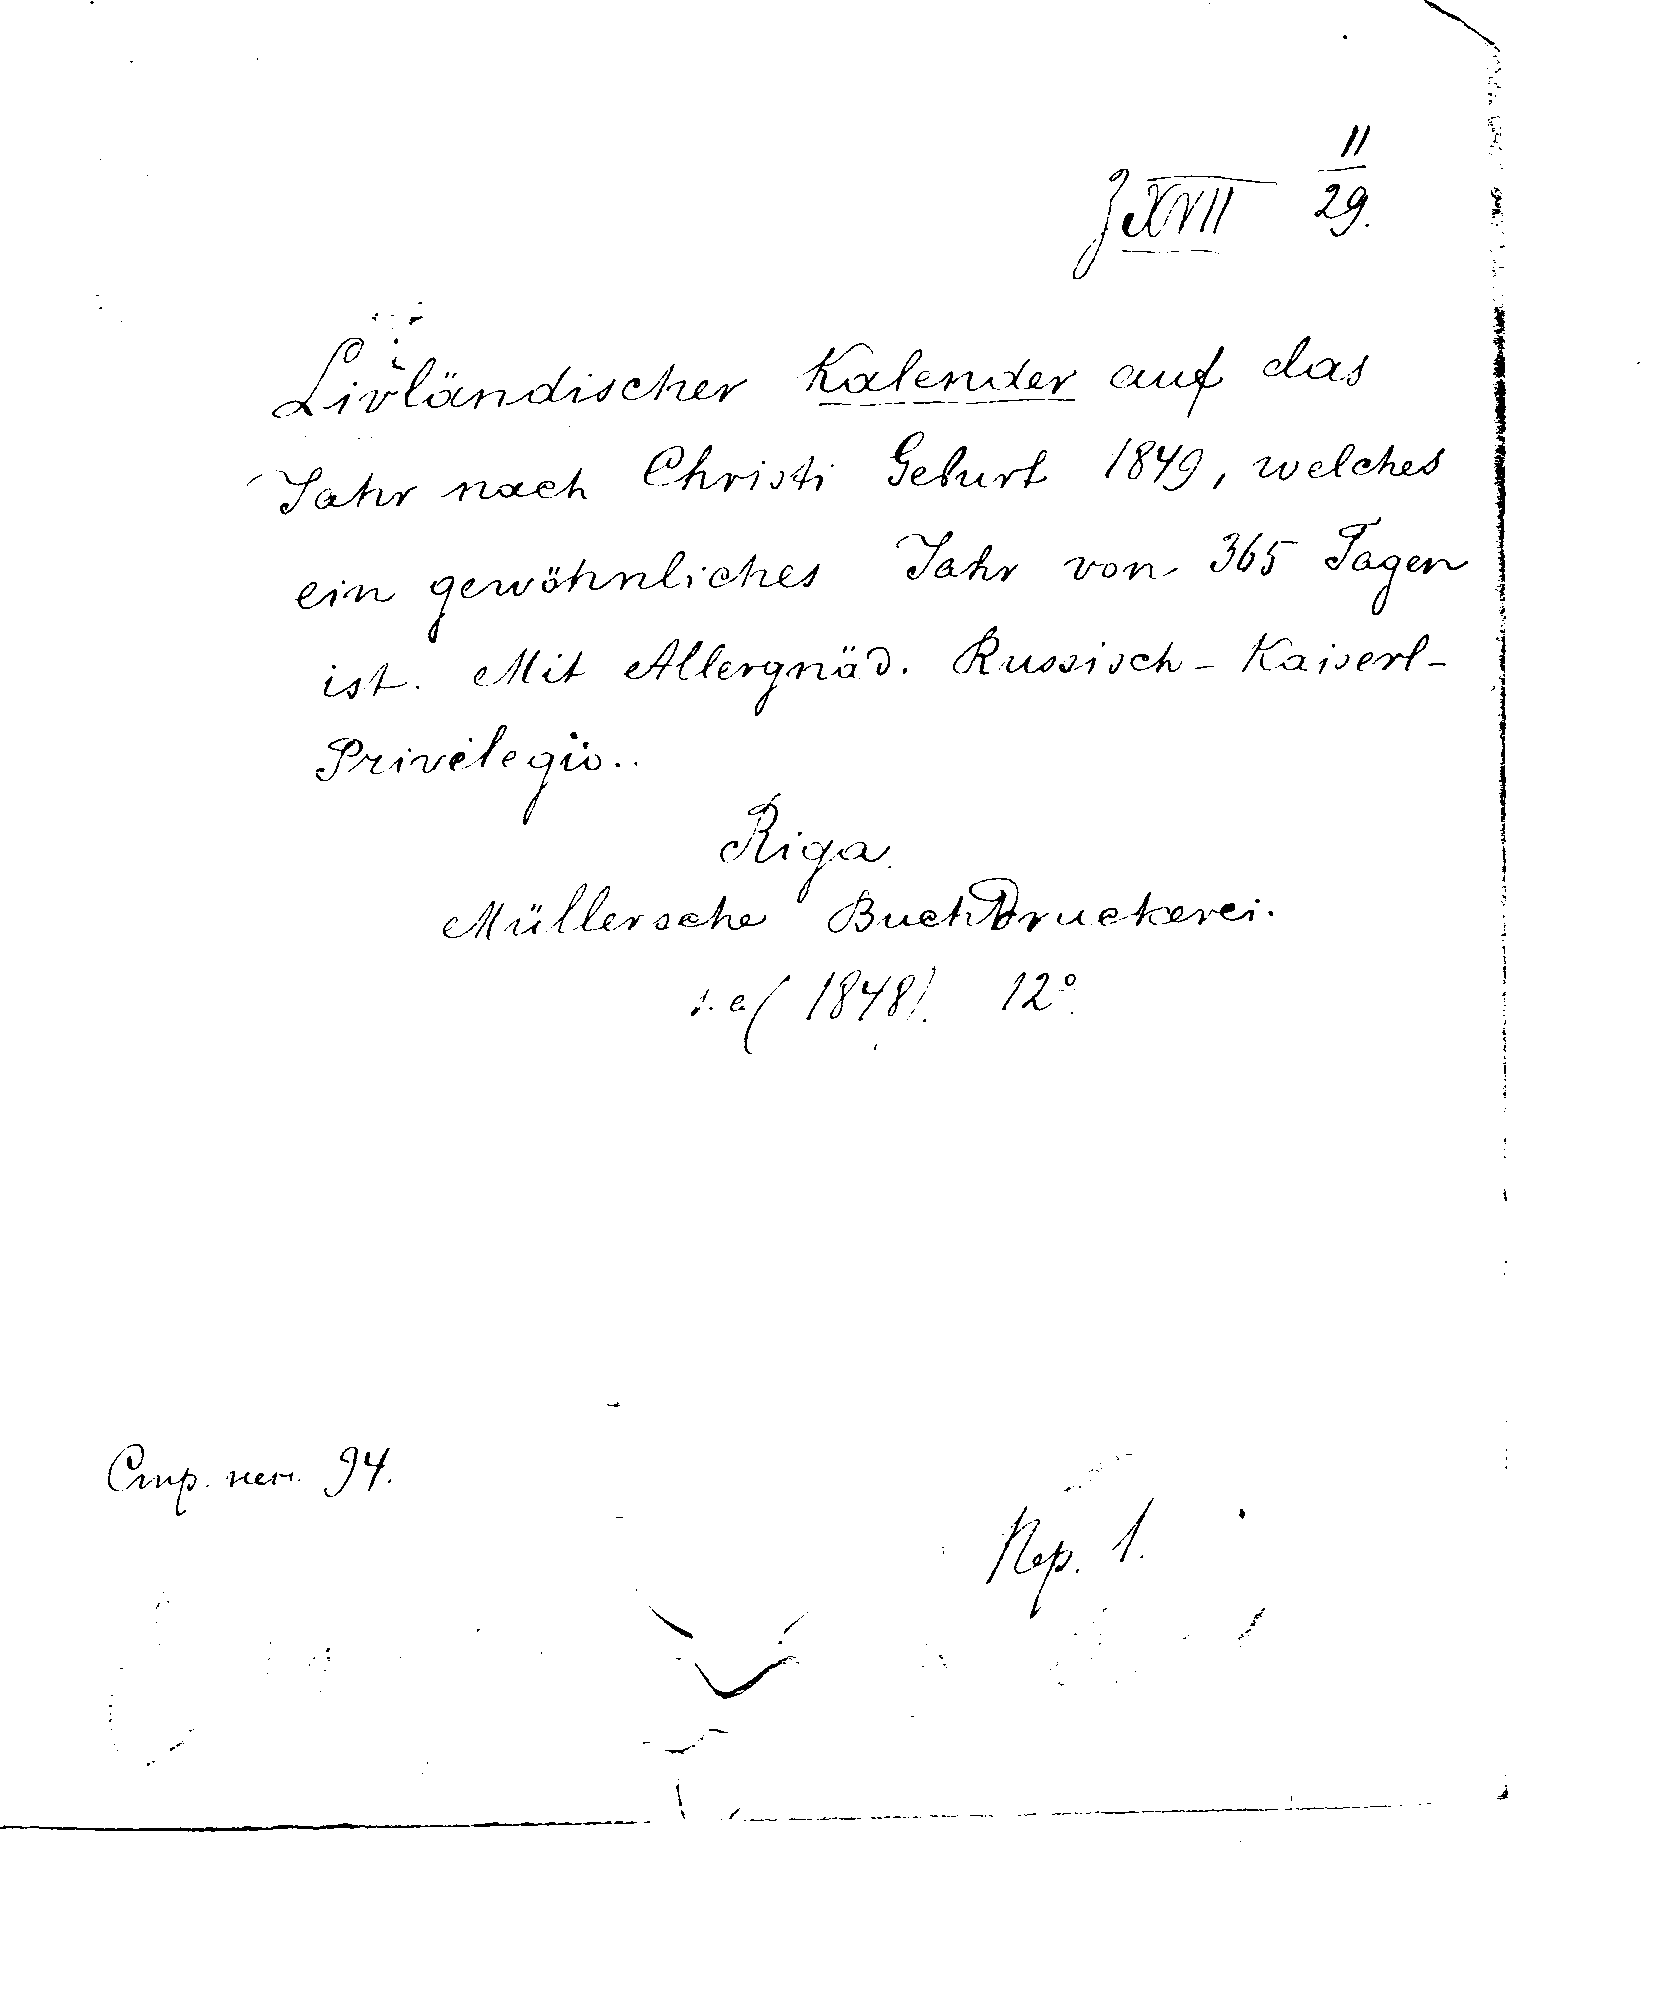 II
З XVII 29.
Livländischer Kalender auf das
Jahr nach Christi Geburt 1849, welches
ein gewöhnliches Jahr von 365 Tagen
ist. Mit Allergnäd. Russisch- Kaiserl-
Privilegio..
Riga
Müllersche BuchDruckerei.
s. a ( 1848). 12°.
Стр. неп. 94.
Пер. 1.